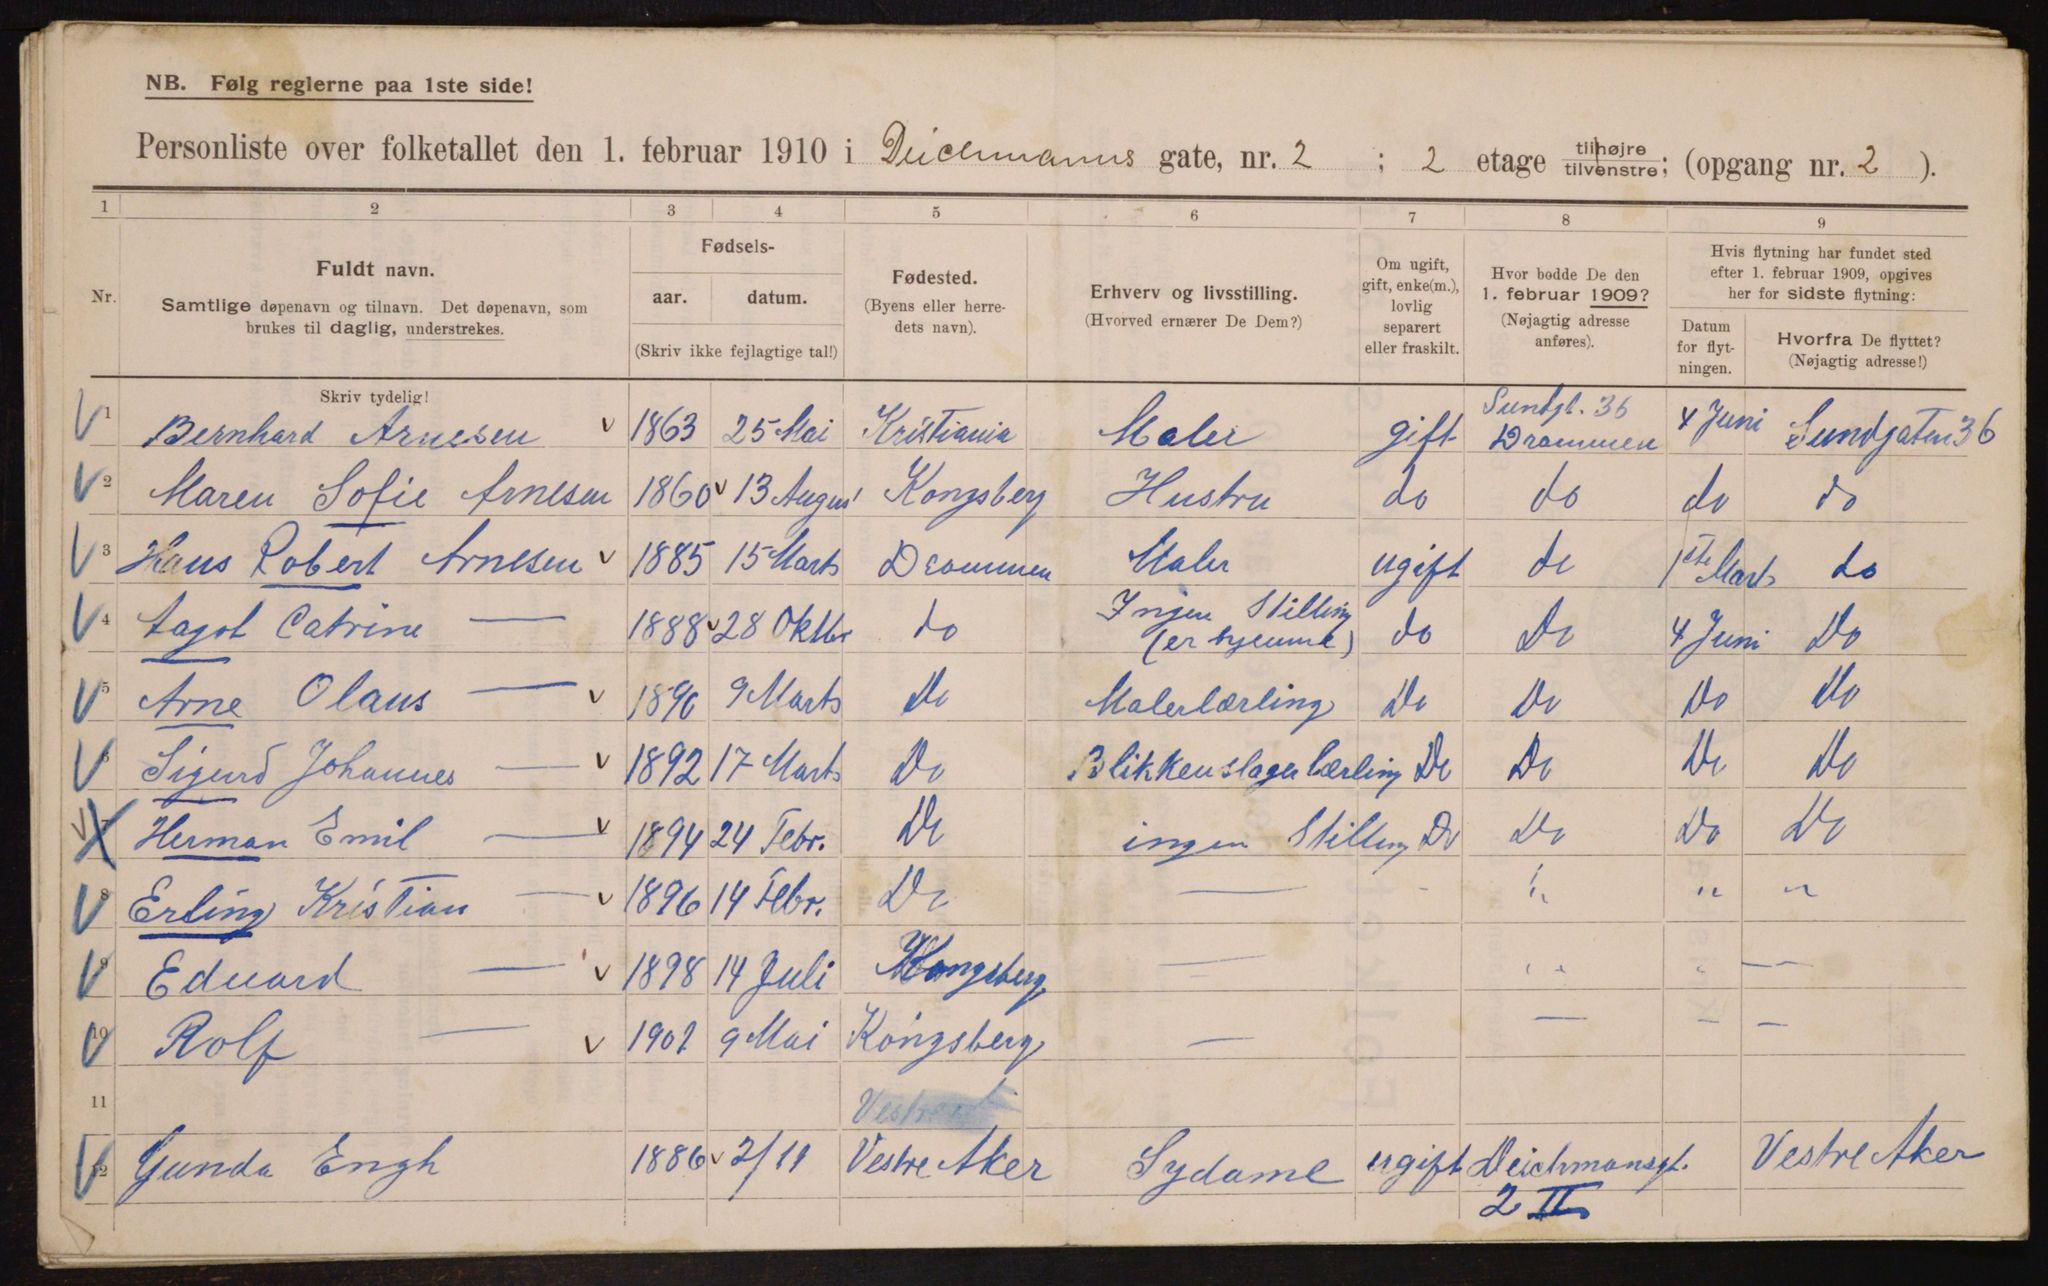 NB. Følg reglerne paa 1ste side!
Personliste over folketallet den 1. februar 1910 i Deichmanns gate, nr. 2 ; 2 etage tilhøjre/tilvenstre; (opgang nr. 2 ).
1 2 3 4 5 6 7 8 9
Nr. Fuldt navn. Samtlige døpenavn og tilnavn. Det døpenavn, som brukes til daglig, understrekes.
Fødsels- aar. datum. (Skriv ikke fejlagtige tal!)
Fødested. (Byens eller herredets navn).
Erhverv og livsstilling. (Hvorved ernærer De Dem?)
Om ugift, gift, enke(m.), lovlig separert eller fraskilt.
Hvor bodde De den 1. februar 1909? (Nøjagtig adresse anføres).
Hvis flytning har fundet sted efter 1. februar 1909, opgives her for sidste flytning:
Datum for flytningen. Hvorfra De flyttet? (Nøjagtig adresse!)
Skriv tydelig!
1 Bernhard Arnesen 1863 25 Mai Kristiania Maler gift Sundgt. 36 Drammen 4 Juni Sundgaten 36
2 Maren Sofie Arnesen 1860 13 August Kongsberg Hustru do do do do
3 Hans Robert Arnesen 1885 15 Marts Drammen Maler ugift do 1ste Marts do
4 Aagot Catrine — 1888 28 Oktbr do Ingen Stilling (er hjemme) do Do 4 Juni Do
5 Arne Olaus — 1890 9 Marts Do Malerlærling Do Do Do Do
6 Sigurd Johannes — 1892 17 Marts Do Blikkenslagerlærling Do Do Do Do
7 Herman Emil — 1894 24 Febr. Do ingen Stilling Do Do Do Do
8 Erling Kristian — 1896 14 Febr. Do — - " " "
9 Eduard — 1898 14 Juli Kongsberg — " " —
10 Rolf — 1901 9 Mai Kongsberg — — - -
11 Vestre
12 Gunda Engh 1886 2/11 Vestre Aker Sydame ugift Deichmansgt. 2 II Vestre Aker